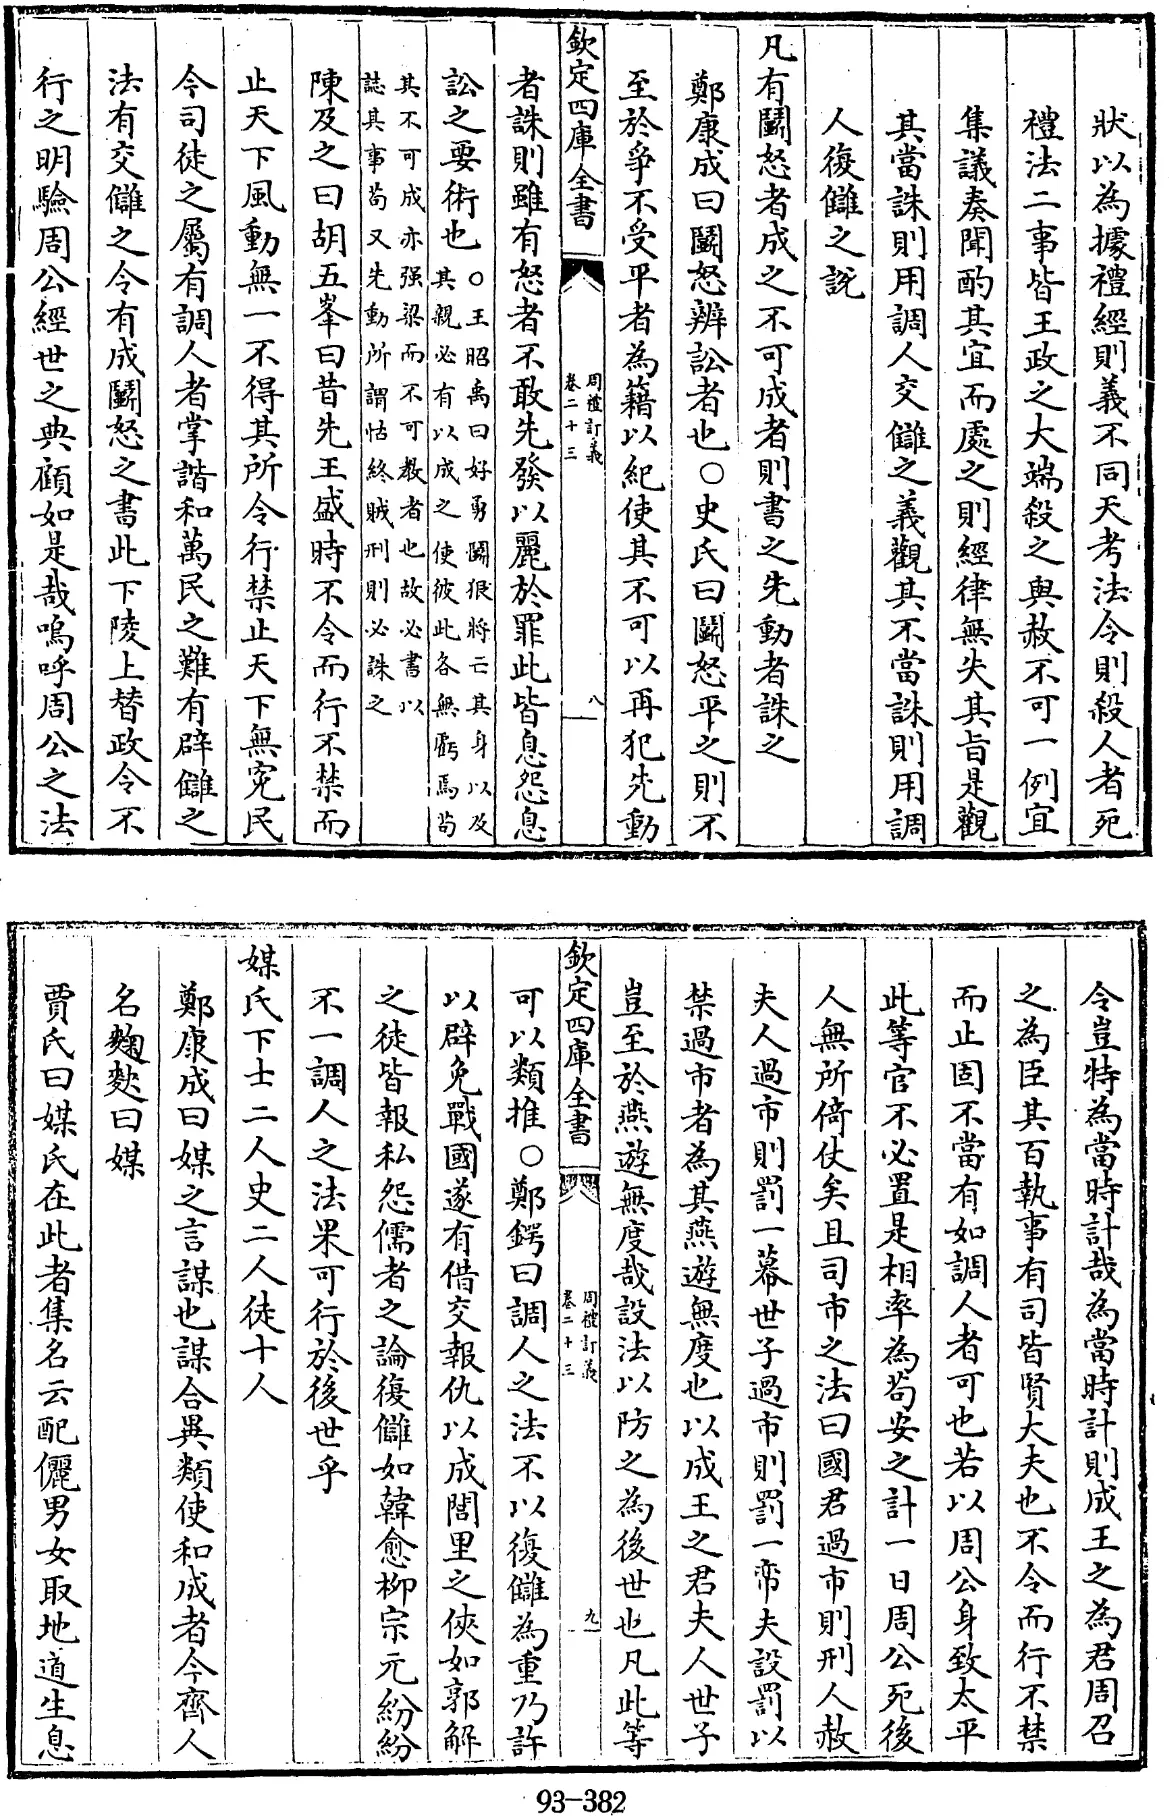 狀以為據禮經則義不同天考法令則殺人者死
禮法二事皆王政之大端殺之與赦不可一例宜
集議奏聞酌其宜而處之則經律無失其旨是觀
其當誅則用調人交讎之義觀其不當誅則用調
人復讎之説
凡有鬭怒者成之不可成者則書之先動者誅之
鄭康成曰鬭怒辨訟者也○史氏曰鬭怒平之則不
至於爭不受平者為籍以紀使其不可以再犯先動
欽定四庫全書
周禮訂義
卷二十三
八
者誅則雖有怒者不敢先發以麗於罪此皆息怨息
訟之要術也
○王昭禹曰好勇鬭狠將亡其身以及
其親必有以成之使彼此各無虧焉苟
其不可成亦强梁而不可教者也故必書以
誌其事苟又先動所謂怙終賊刑則必誅之
陳及之曰胡五峯曰昔先王盛時不令而行不禁而
止天下風動無一不得其所令行禁止天下無寃民
今司徒之屬有調人者掌諧和萬民之難有辟讎之
法有交讎之令有成鬭怒之書此下陵上替政令不
行之明驗周公經世之典顧如是哉嗚呼周公之法
令豈特為當時計哉為當時計則成王之為君周召
之為臣其百執事有司皆賢大夫也不令而行不禁
而止固不當有如調人者可也若以周公身致太平
此等官不必置是相率為苟安之計一日周公死後
人無所倚仗矣且司市之法曰國君過市則刑人赦
夫人過市則罰一幕世子過市則罰一帟夫設罰以
禁過市者為其燕遊無度也以成王之君夫人世子
豈至於燕遊無度哉設法以防之為後世也凡此等
欽定四庫全書
周禮訂義
卷二十三
九
可以類推○鄭鍔曰調人之法不以復讎為重乃許
以辟免戰國遂有借交報仇以成閭里之俠如郭解
之徒皆報私怨儒者之論復讎如韓愈柳宗元紛紛
不一調人之法果可行於後世乎
媒氏下士二人史二人徒十人
鄭康成曰媒之言謀也謀合異類使和成者今齊人
名麴䴷曰媒
賈氏曰媒氏在此者集名云配儷男女取地道生息
93-382